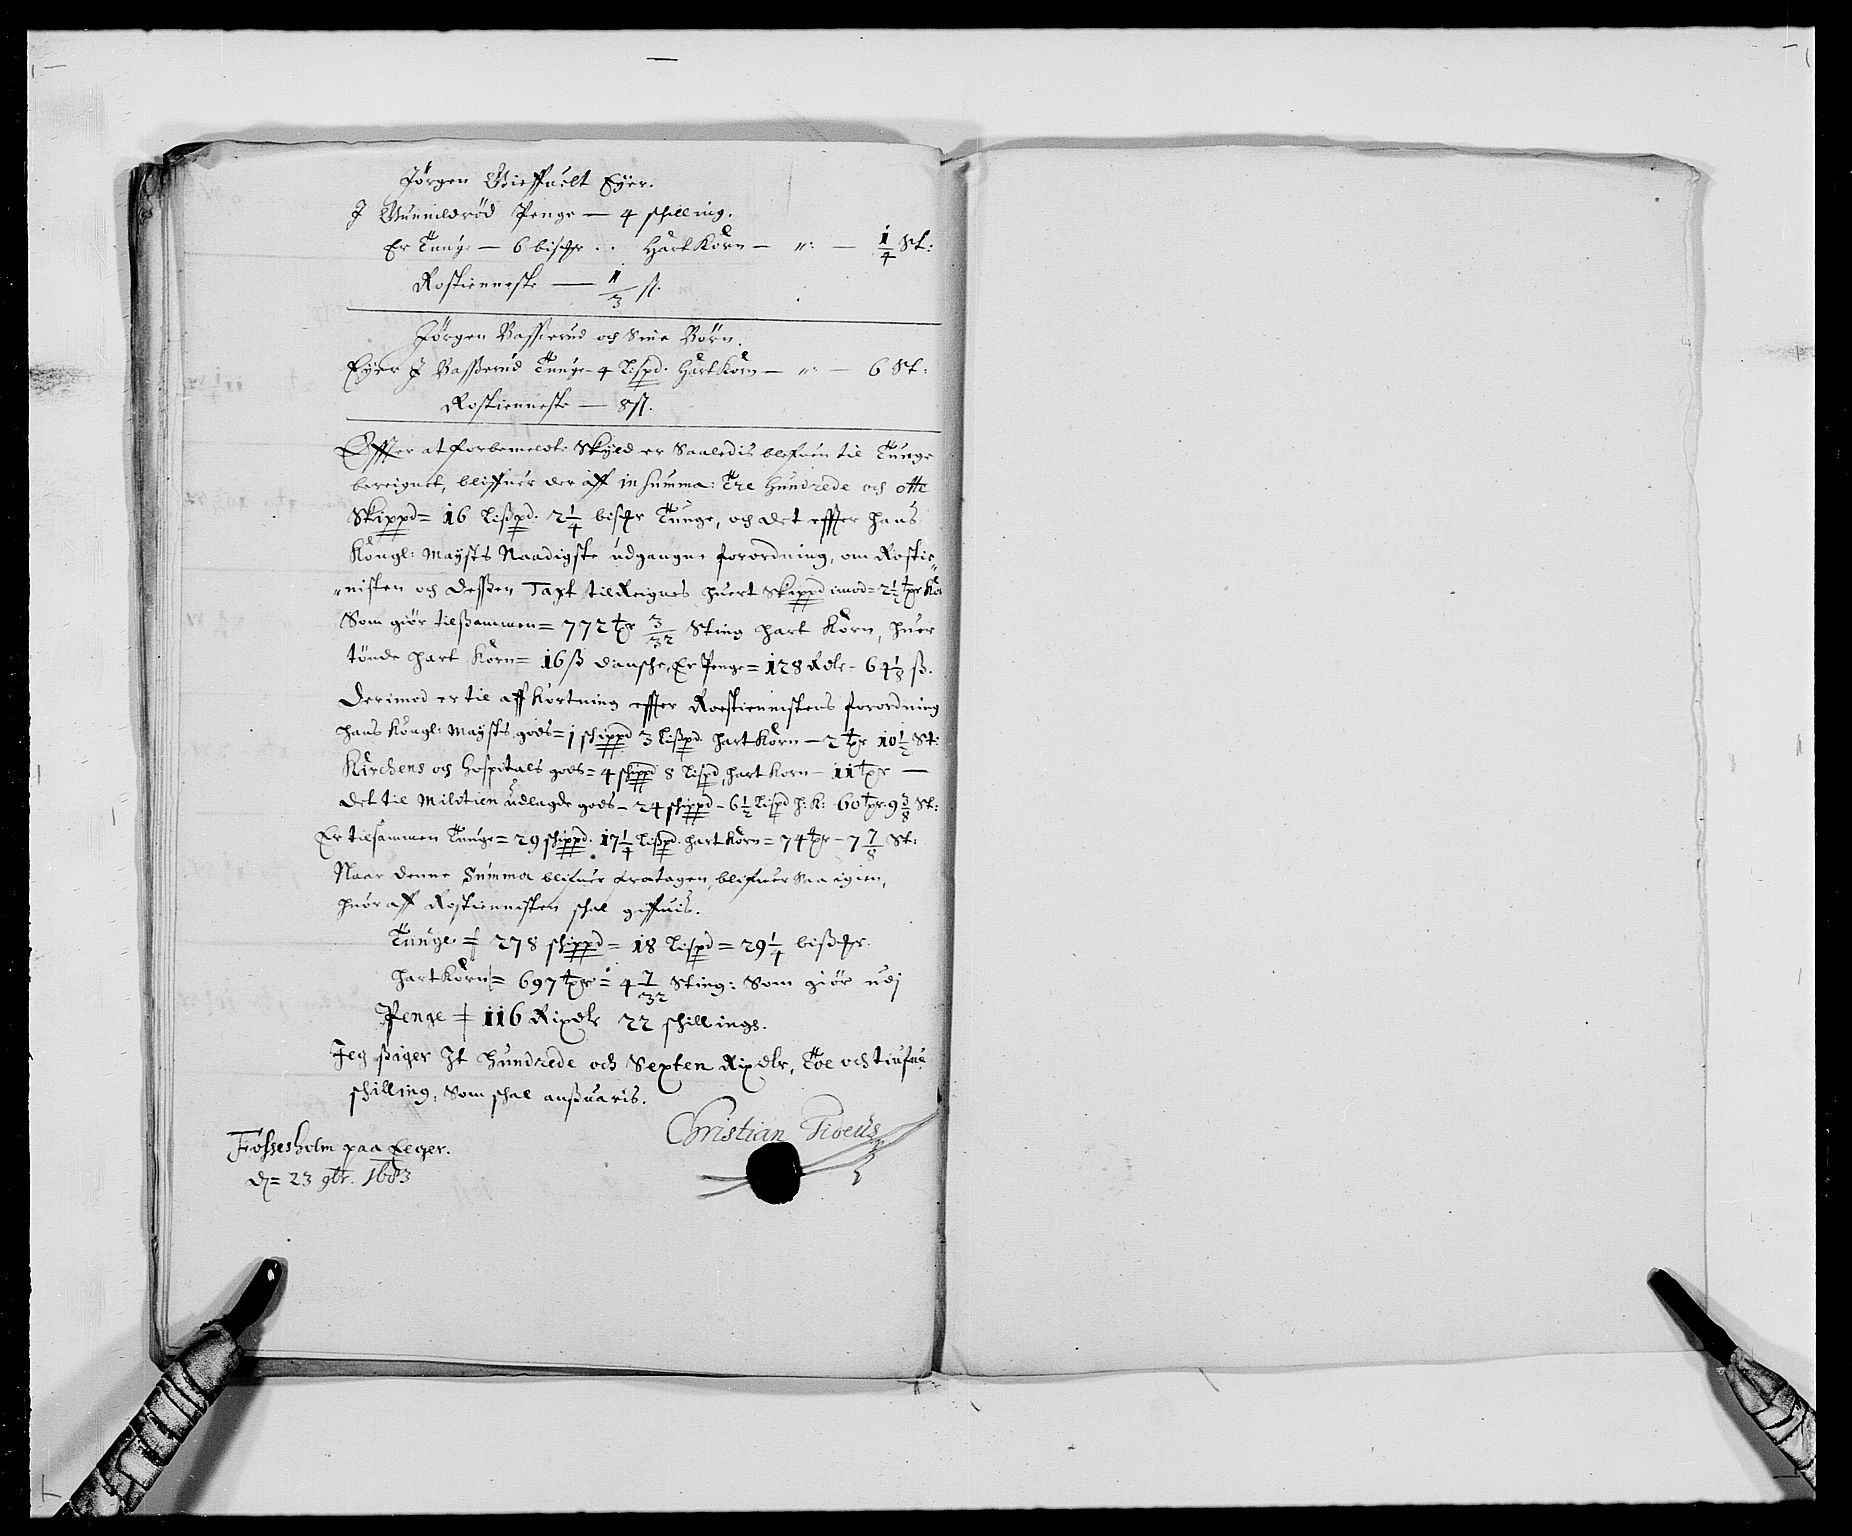 Jörgen Gieffuelt Eÿer.
J Gunnildröd Penge — 4 schilling.
Er Tunge — 6 bischr .. Hart Korn — „: — 1/4 St:
Rostienneste — 1/3 ß.
Jörgen Basserud och Sine Börn.
Eÿer J Basserud Tunge – 4 Lispd. Hart Korn — „: — 6 St:
Rostienneste — 8 ß.
Effter at forbemeldte Skÿld er Saaledis blefuen til Tunge
bereignet, bliffuer der aff in Summa: Tre Hundrede och otte
Skippd = 16 Lißpd. 2 1/4 bischr Tunge, och det effter hans
Kongl: Maÿsts Naadigste udgangne forordning, om Rostie„
„nisten och desßen Taxt tilReignes huert Skippd imod = 2 1/2 tr Kor
Som giör tilßammen = 772 tr 3/32 Sting hart Korn, huer
tönde hart Korn = 16 ß dansche, Er Penge = 128 Rdlr – 64 1/8 ß.
Derimod er til aff Kortning effter Roestiennistens forordning
hans Kongl: Maÿsts gods = 1 schippd 3 Lißpd. hart Korn — 2 tr 10 1/2 St:
Kirchens och Hospitals gods = 4 schippd 8 Lispd, hart Korn – 11 tr —
Det til Militien udlagde gods – 24 schippd – 6 1/2 Lispd h: K: 60 tr. 9 3/8 St:
Er tilsammen Tunge = 29 schippd. 17 1/4 Lißpd. hart Korn = 74 tr – 7 7/8 St:
Naar denne Summa blifuer fratagen, blifuer Saa igien,
huor aff Rostiennisten schal giffuis.
Tunge = 278 schippd = 18 Lispd = 29 1/4 bißchr.
hart Korn = 697 tr = 4 7/32 Sting: Som giör udj
Penge = 116 Rixdlr 22 schillings.
Jeg ßiger Jt Hundrede och Sexten Rixdlr, Toe och tiufue
schilling, Som schal anßuaris.
Christian
Fossesholm paa Eeger.
dn = 23 9br. 1683